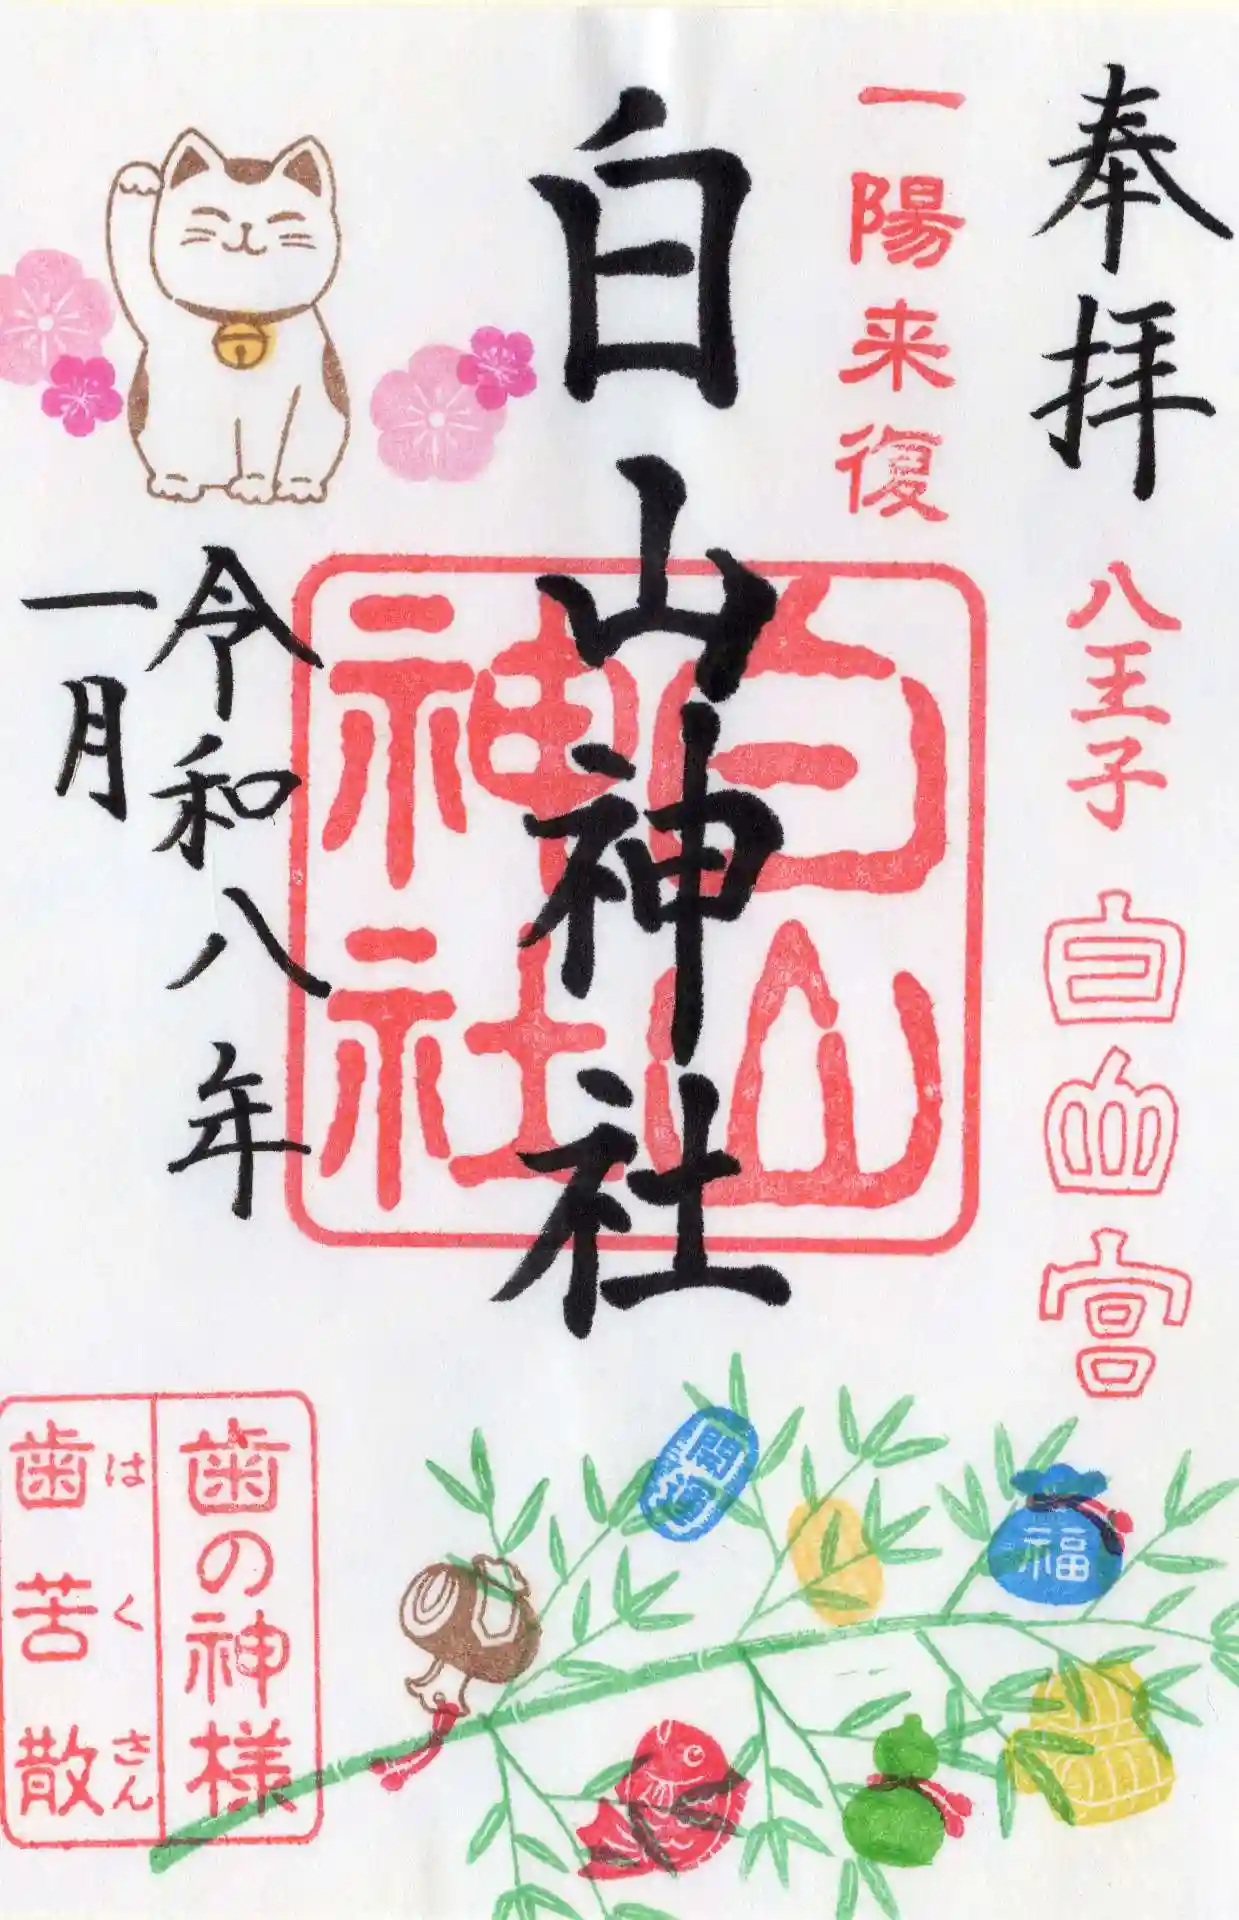 奉拝
八王子
白山宮
一陽来復
白山神社
白山
神社
令和八年
一月
歯の神様
歯苦散
はくさん
福